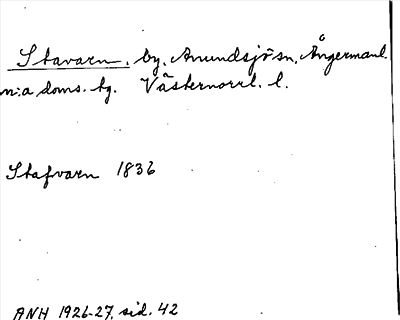 Stavarn, by, Anundsjö sn, Ångermanl.
n:a doms. tg. Västernorrl. l.
Stafvarn 1836
ANH 1926-27, sid. 42